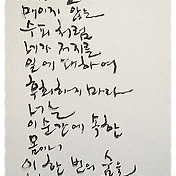 매이지 않는
슈피처럼
네가 저지른
일에 대하여
후회하지 마라
너는
이 순간에 속한
몸이니
이 한 번의 숨을